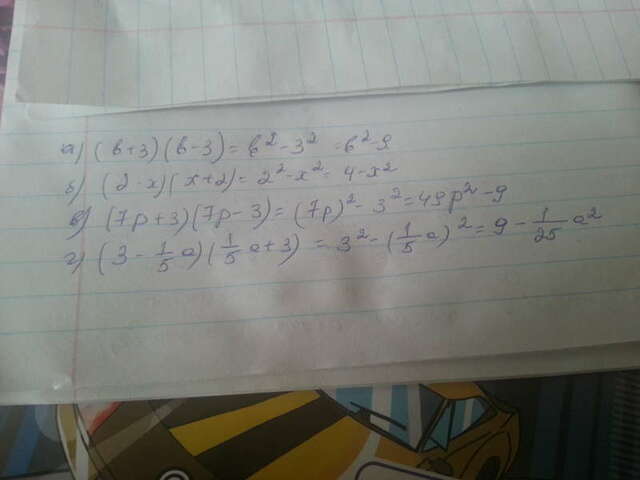 а) (b+3)(b-3) = b² - 3² = b² - 9
б) (2-x)(x+2) = 2² - x² = 4 - x²
в) (7p+3)(7p-3) = (7p)² - 3² = 49p² - 9
г) (3 - 1/5 a)(1/5 a + 3) = 3² - (1/5 a)² = 9 - 1/25 a²